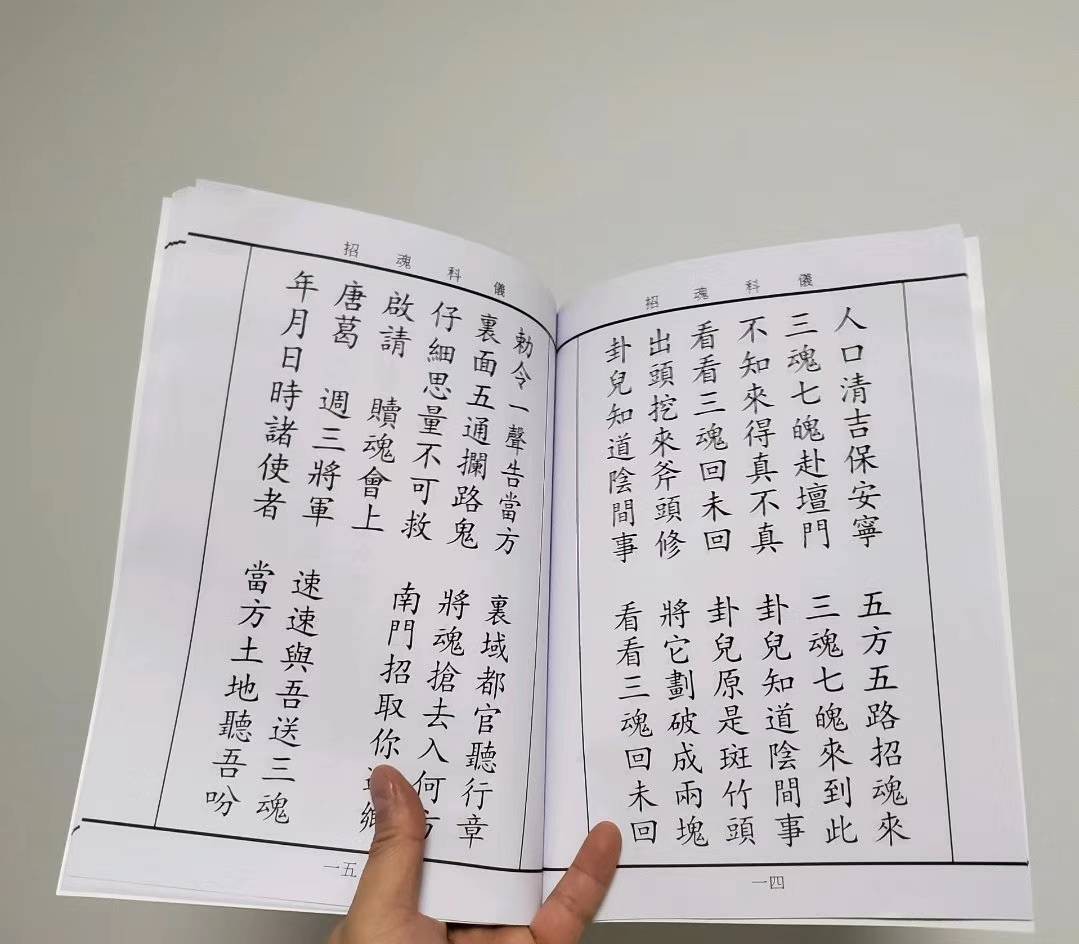 招魂科儀
人口清吉保安寧 五方五路招魂來
三魂七魄赴壇門 三魂七魄來到此
不知來得真不真 卦兒知道陰間事
看看三魂回未回 卦兒原是斑竹頭
出頭挖來斧頭修 將它劃破成兩塊
卦兒知道陰間事 看看三魂回未回
一四
招魂科儀
勅令一聲告當方 裏域都官聽行章
裏面五通攔路鬼 將魂搶去入何方
仔細思量不可救 南門招取你
啟請 贖魂會上
唐葛 週三將軍 速速與吾送三魂
年月日時諸使者 當方土地聽吾吩
一五